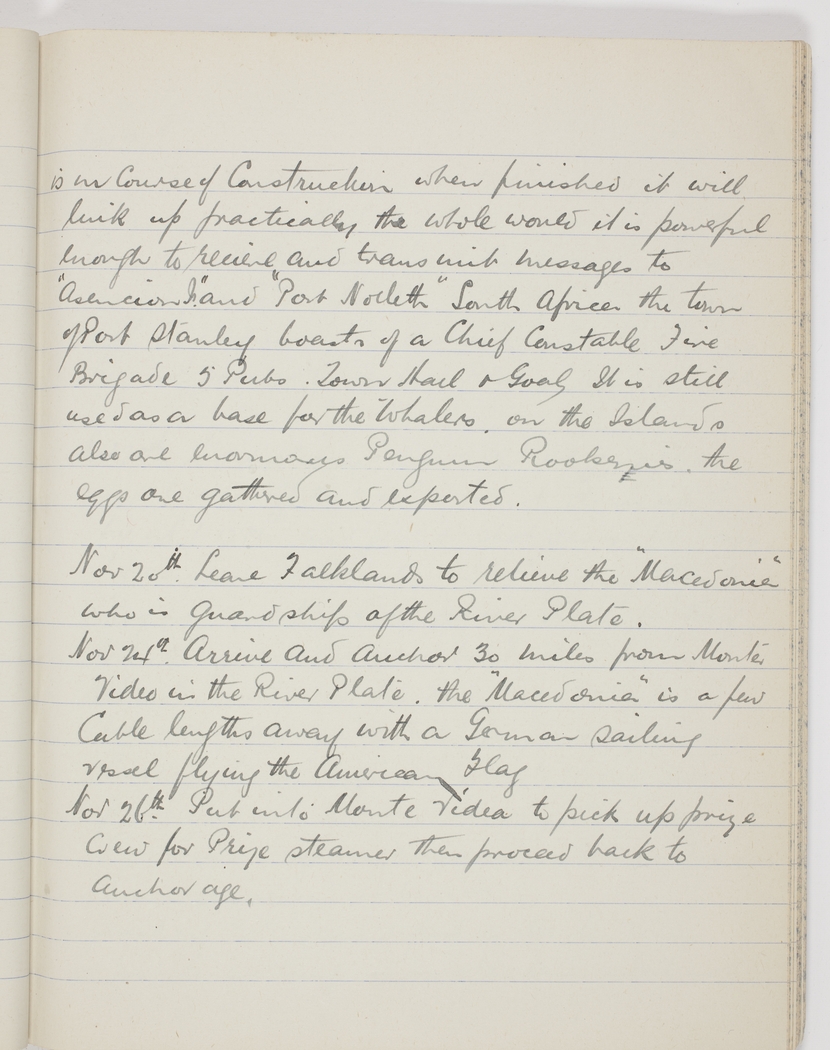 is in Course of Construction when finished it will
link up practically the whole world it is powerful
enough to recieve and transmit messages to
"Asencion I." and "Port Nolleth" South Africa the town
of Port Stanley boasts of a Chief Constable Fire
Brigade 5 Pubs. Town Hall & Goal, It is still
used as a base for the Whalers. on the Islands
also are enormous Penguin Rookeries. the
eggs are gathered and exported.
Nov 20th. Leave Falklands to relieve the "Macedonia"
who is guardship of the River Plate.
Nov 24th. Arrive and anchor 30 miles from Monte
Video in the River Plate. the "Macedonia" is a few
Cable lengths away with a German sailing
vessel flying the American Flag
Nov 26th. Put into Monte Videa to pick up prize
crew for Prize steamer then proceed back to
anchorage.